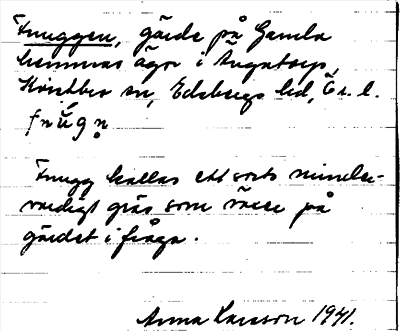 Fnuggen, gärde på Gamla
hemmas ägor i Ängatorp,
Kvistbro sn, Edsbergs hd, Ör. l.
fnúgn̥
Fnugg kallas ett sorts minder-
värdigt gräs som växer på
gärdet i fråga.
Anna Larsson 1941.